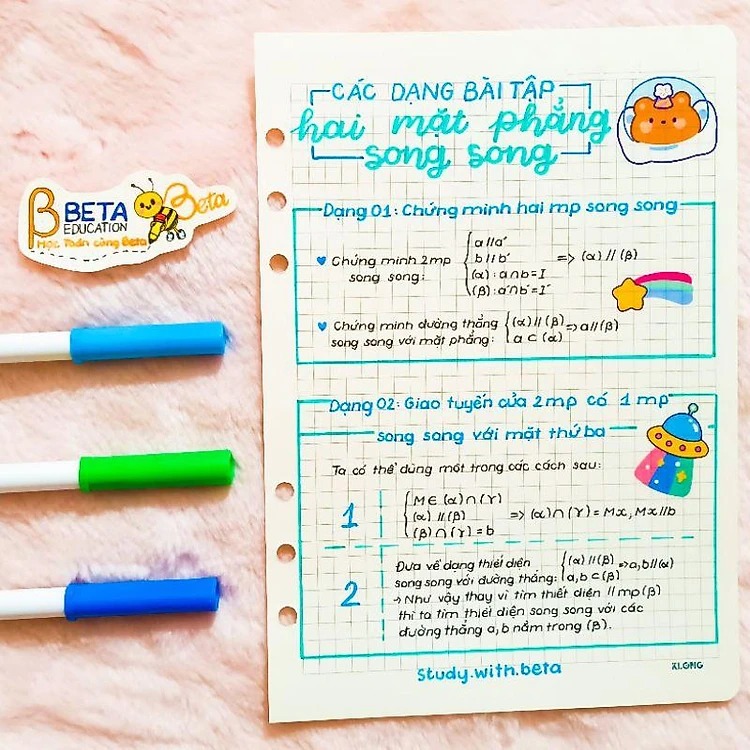 CÁC DẠNG BÀI TẬP
hai mặt phẳng
song song
β BETA
EDUCATION
Học Toán cùng Beta
Beta
Dạng 01: Chứng minh hai mp song song
♥ Chứng minh 2mp
song song:
a // a'
b // b'
(α): a∩b=I
(β): a'∩b'=I'
=> (α) // (β)
♥ Chứng minh đường thẳng
song song với mặt phẳng:
(α) // (β)
a ⊂ (α)
=> a // (β)
Dạng 02: Giao tuyến của 2mp có 1 mp
song song với mặt thứ ba
Ta có thể dùng một trong các cách sau:
1
M ∈ (α)∩(γ)
(α) // (β)
(β)∩(γ)=b
=> (α)∩(γ) = Mx, Mx//b
2
Đưa về dạng thiết diện
song song với đường thẳng:
(α)//(β)
a,b⊂(β)
=>a,b//(α)
→ Như vậy thay vì tìm thiết diện // mp(β)
thì ta tìm thiết diện song song với các
đường thẳng a,b nằm trong (β).
study.with.beta
KLONG